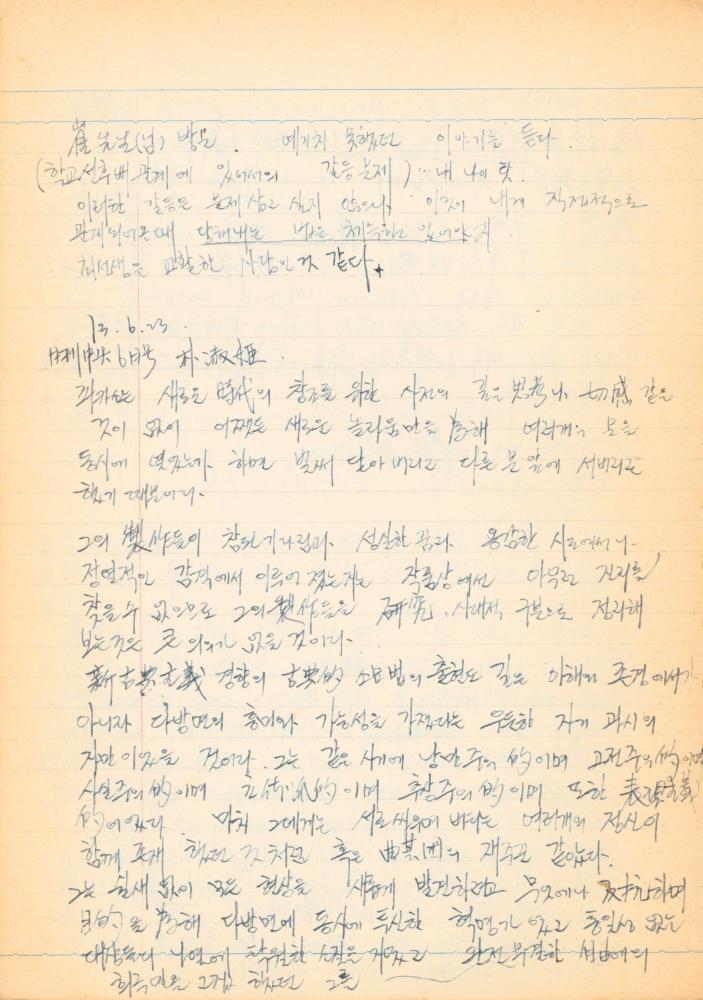 崔 先生(님) 방문. 예기치 못했던 이야기를 듣다.
(학교 선후배 관계에 있어서의 갈등문제)…내 나이 탓.
이러한 갈등은 문제 삼고 싶지 않으나, 이것이 내게 직접적으로
관계되어 올 때 법은 체득하고 있어야
최선생은 교활한 사람인 것 같다.
13. 6. 23.
6月号 朴淑姬.
피카소는 새로운 時代의 창조를 위한 사전의 깊은 思考나 切感 같은
것이 없이 어쨌든 새로운 놀라움만을 향해 여러개의 문을
동시에 열었는가 하면 벌써 닫아 버리고 다른 문 앞에 서버리곤
했기 때문이다.
그의 製作들이 참된 기다림과, 성실한 꿈과, 용감한 시도에서나
정열적인 감격에서 이루어 졌는지는 작품상에서 아무런 진리를
찾을 수 없으므로 그의 製作들을 硏究, 시대적 구분으로 정리해
보는 것은 큰 의의가 없을 것이다.
新古典主義 경향의 古典的 소묘법의 출현도 깊은 이해와 존경에서가
아니라 다방면의 흥미와 가능성을 가졌다는 우둔한 자기 과시의
자만이었을 것이다. 그는 같은 시기에 낭만주의的이며 고전주의的이며
사실주의的이며 立体派的이며 추상주의的이며 또한 表現主義
的이었다. 마치 그에게는 서로 싸우며 바라는 여러개의 정신이
함께 존재 했던 것처럼 혹은 曲芸団의 재주꾼 같았다.
그는 쉴새 없이 모든 현상을 새롭게 발견하려고 무엇에나 反抗하며
目的을 향해 다방면에 동시에 투신한 혁명가였고 통일성 없는
대상들의 나열에 탁월한 소질을 지녔고 완전무결한 성에의
최극만을 고집 했던 그를